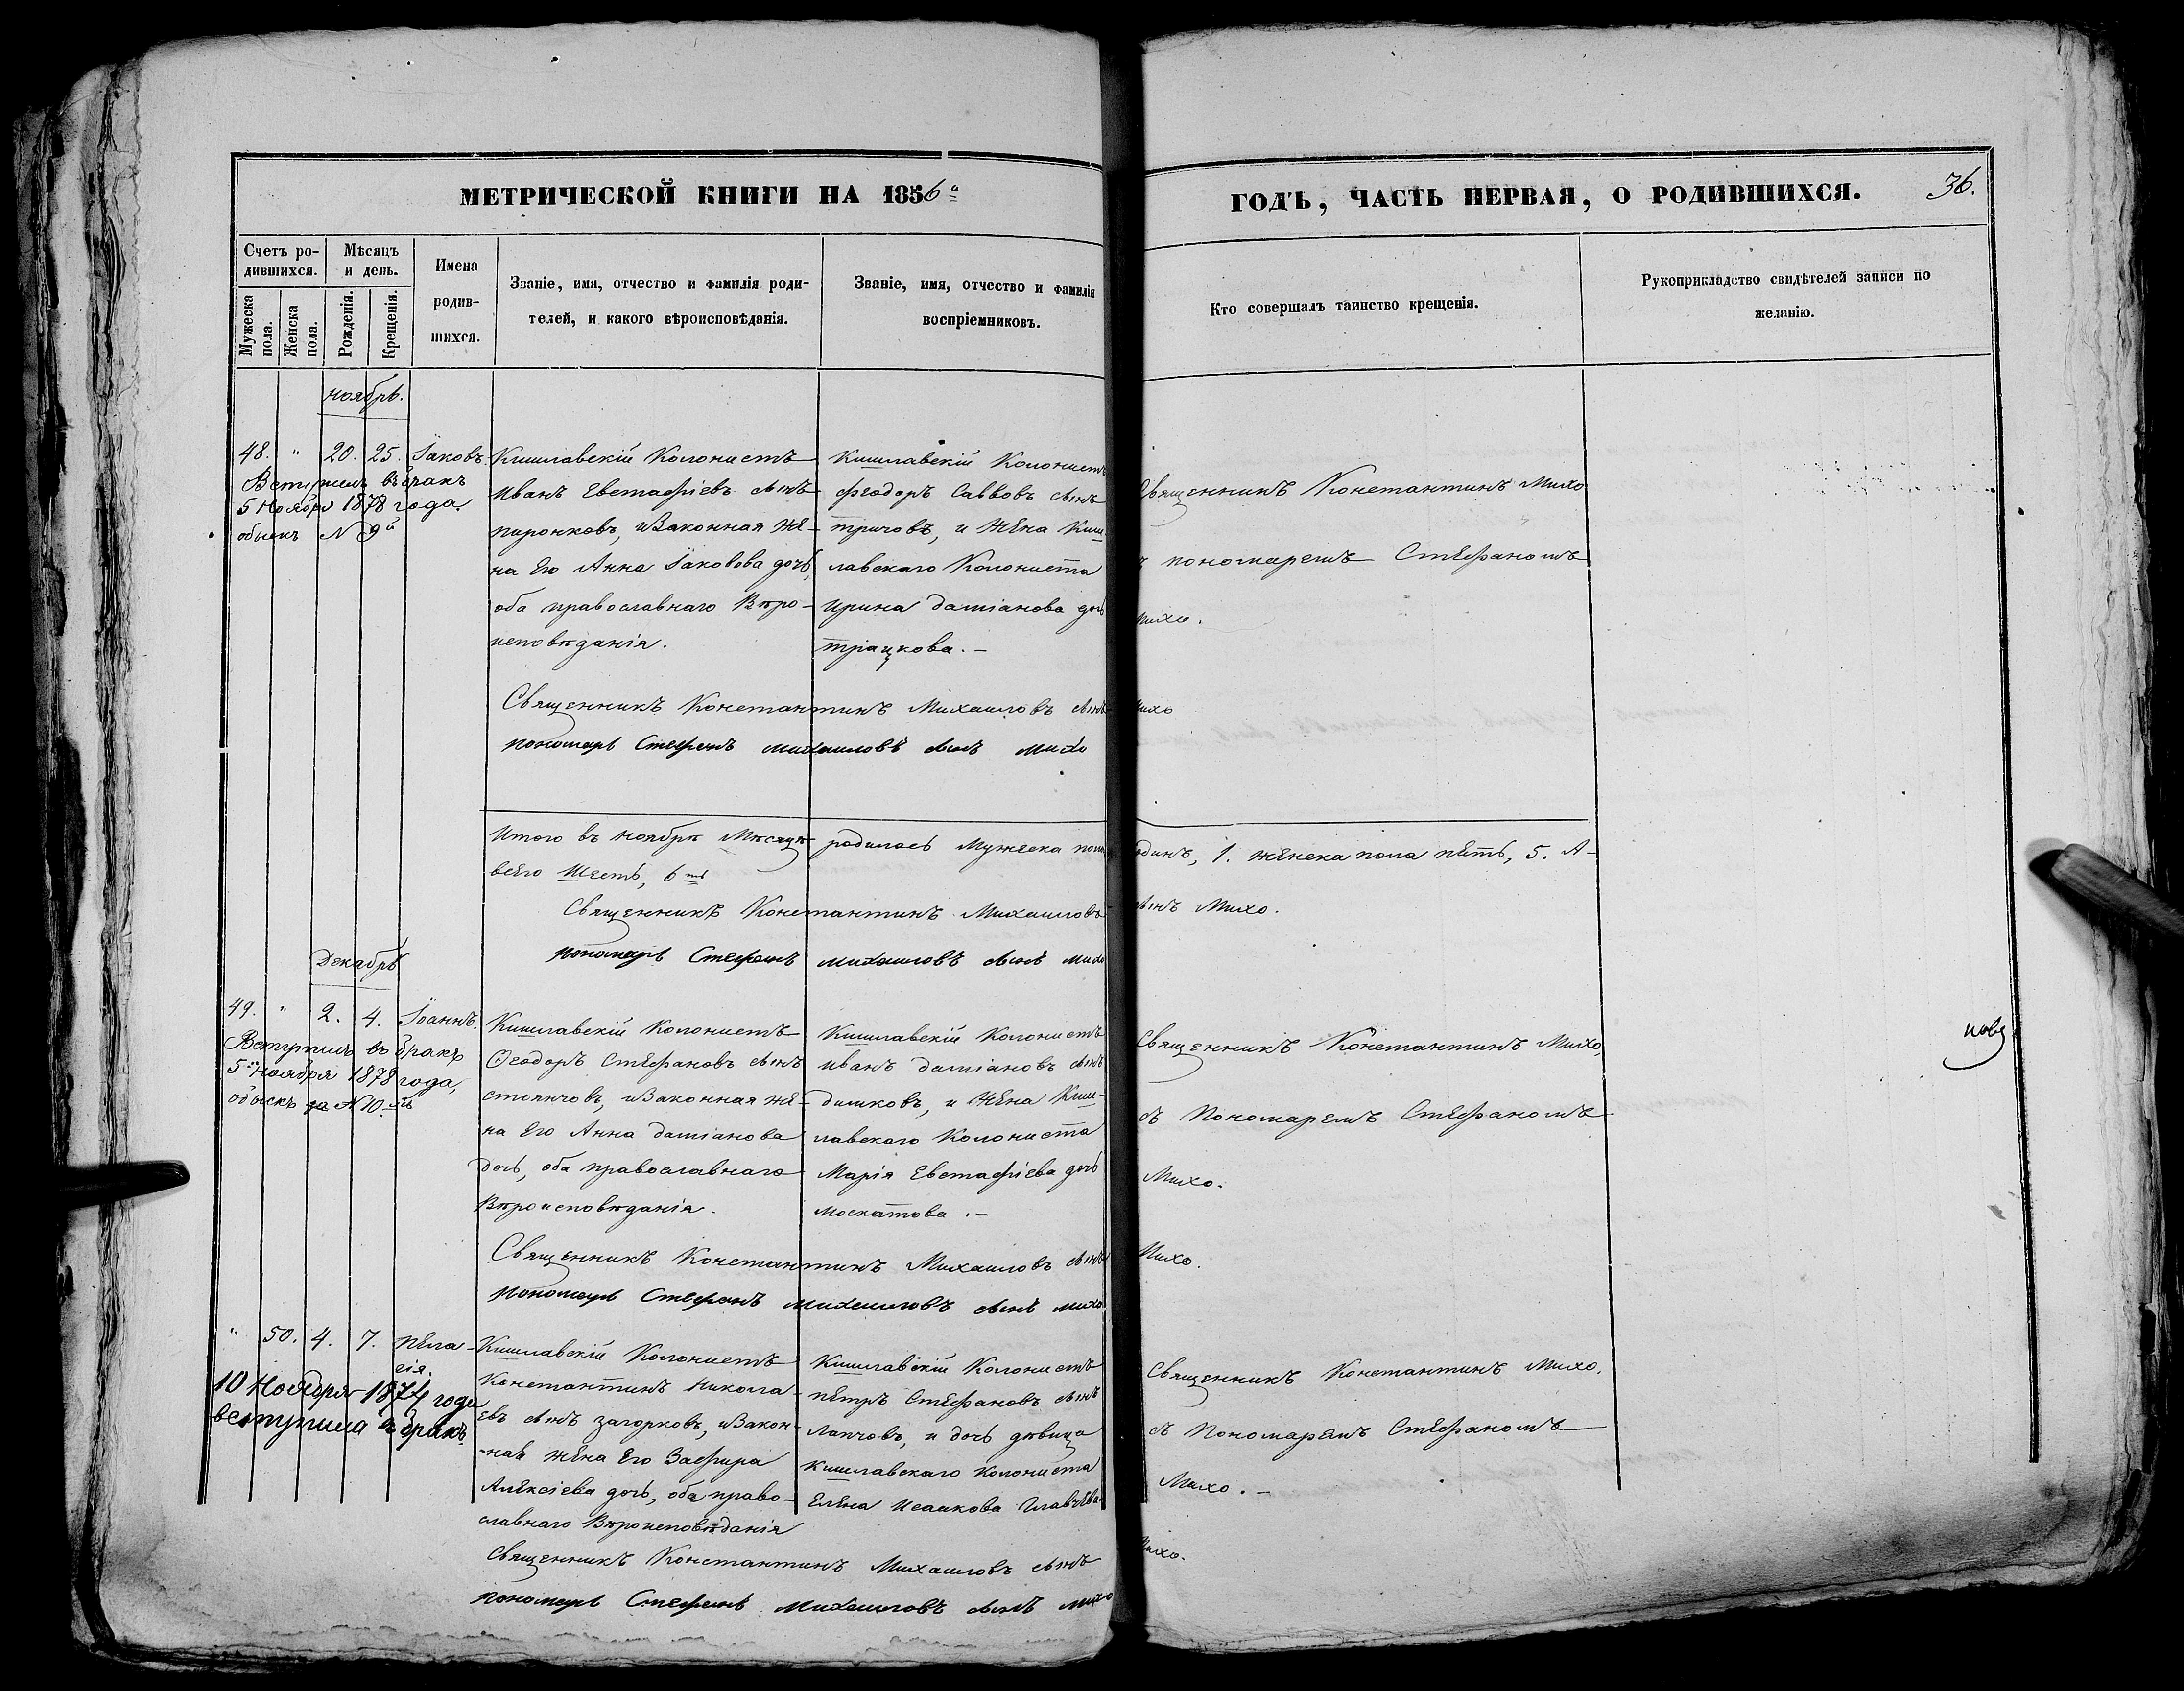 МЕТРИЧЕСКОЙ КНИГИ НА 1856ᵃ
ГОДЪ, ЧАСТЬ ПЕРВАЯ, О РОДИВШИХСЯ.
36.
Счетъ ро-
дившихся.
Мѣсяцъ
и день.
Имена
родив-
шихся.
Мужеска
пола.
Женска
пола.
Рожденія.
Крещенія.
Званіе, имя, отчество и фамилія роди-
телей, и какого вѣроисповѣданія.
Званіе, имя, отчество и фамилія
воспріемниковъ.
Кто совершалъ таинство крещенія.
Рукоприкладство свидѣтелей записи по
желанію.
Ноябрь.
48. " 20. 25. Іаковъ.
Вступилъ въ бракъ
5 Ноября 1878 года.
обыскъ N 9й
Кишлавскій Колонистъ
Иванъ Евстафіевъ сынъ
пиронковъ, и Законная Же-
на Его Анна Іаковова дочь,
оба православнаго Вѣро-
исповѣданія.
Кишлавскій Колонистъ
Феодоръ Саввовъ сынъ
тричовъ, и Жена Киш-
лавскаго Колониста
Ирина даміанова дочь
трацкова. –
Священникъ Константинъ Михо
пономаремъ Стефаномъ
Михо.
Священникъ Константинъ Михаиловъ сынъ Михо
пономарь Стефанъ михаиловъ сынъ михо
Итого въ ноябрѣ Мѣсяцѣ родилось Мужеска пола одинъ, 1. женска пола пять, 5. А-
всего Шесть, 6ть
Священникъ Константинъ Михаиловъ сынъ Михо.
пономарь Стефанъ михаиловъ сынъ михо
Декабрь
49. " 2. 4. Іоаннъ.
Вступилъ въ бракъ
5го Ноября 1878 года,
обыскъ за N 10.й
Кишлавскій Колонистъ
Ѳеодоръ Стефановъ сынъ
стоянчовъ, и Законная же-
на Его Анна даміанова
дочь, оба православнаго
Вѣроисповѣданія.
Кишлавскій Колонистъ
иванъ даміановъ сынъ
димковъ, и Жена Киш-
лавскаго Колониста
Марія Евстафіева дочь
москатова. –
Священникъ Константинъ Михо,
съ Пономаремъ Стефаномъ
Михо.
Священникъ Константинъ Михаиловъ сынъ Михо.
пономарь Стефанъ михаиловъ сынъ михо
" 50. 4. 7. Пела-
гія.
10 Ноября 1874 года
вступила въ бракъ
Кишлавскій Колонистъ
Константинъ Никола-
евъ сынъ загорковъ, и Закон-
ная жена Его Зафира
Алексіева дочь, оба право-
славнаго Вѣроисповѣданія
Кишлавскій Колонистъ
пётръ Стефановъ сынъ
Лапчовъ, и дочь дѣвица
Кишлавскаго Колониста
Елена Исаакова Главчева
Священникъ Константинъ Михо,
съ Пономаремъ Стефаномъ
Михо. –
Священникъ Константинъ Михаиловъ сынъ Михо.
пономарь Стефанъ михаиловъ сынъ михо